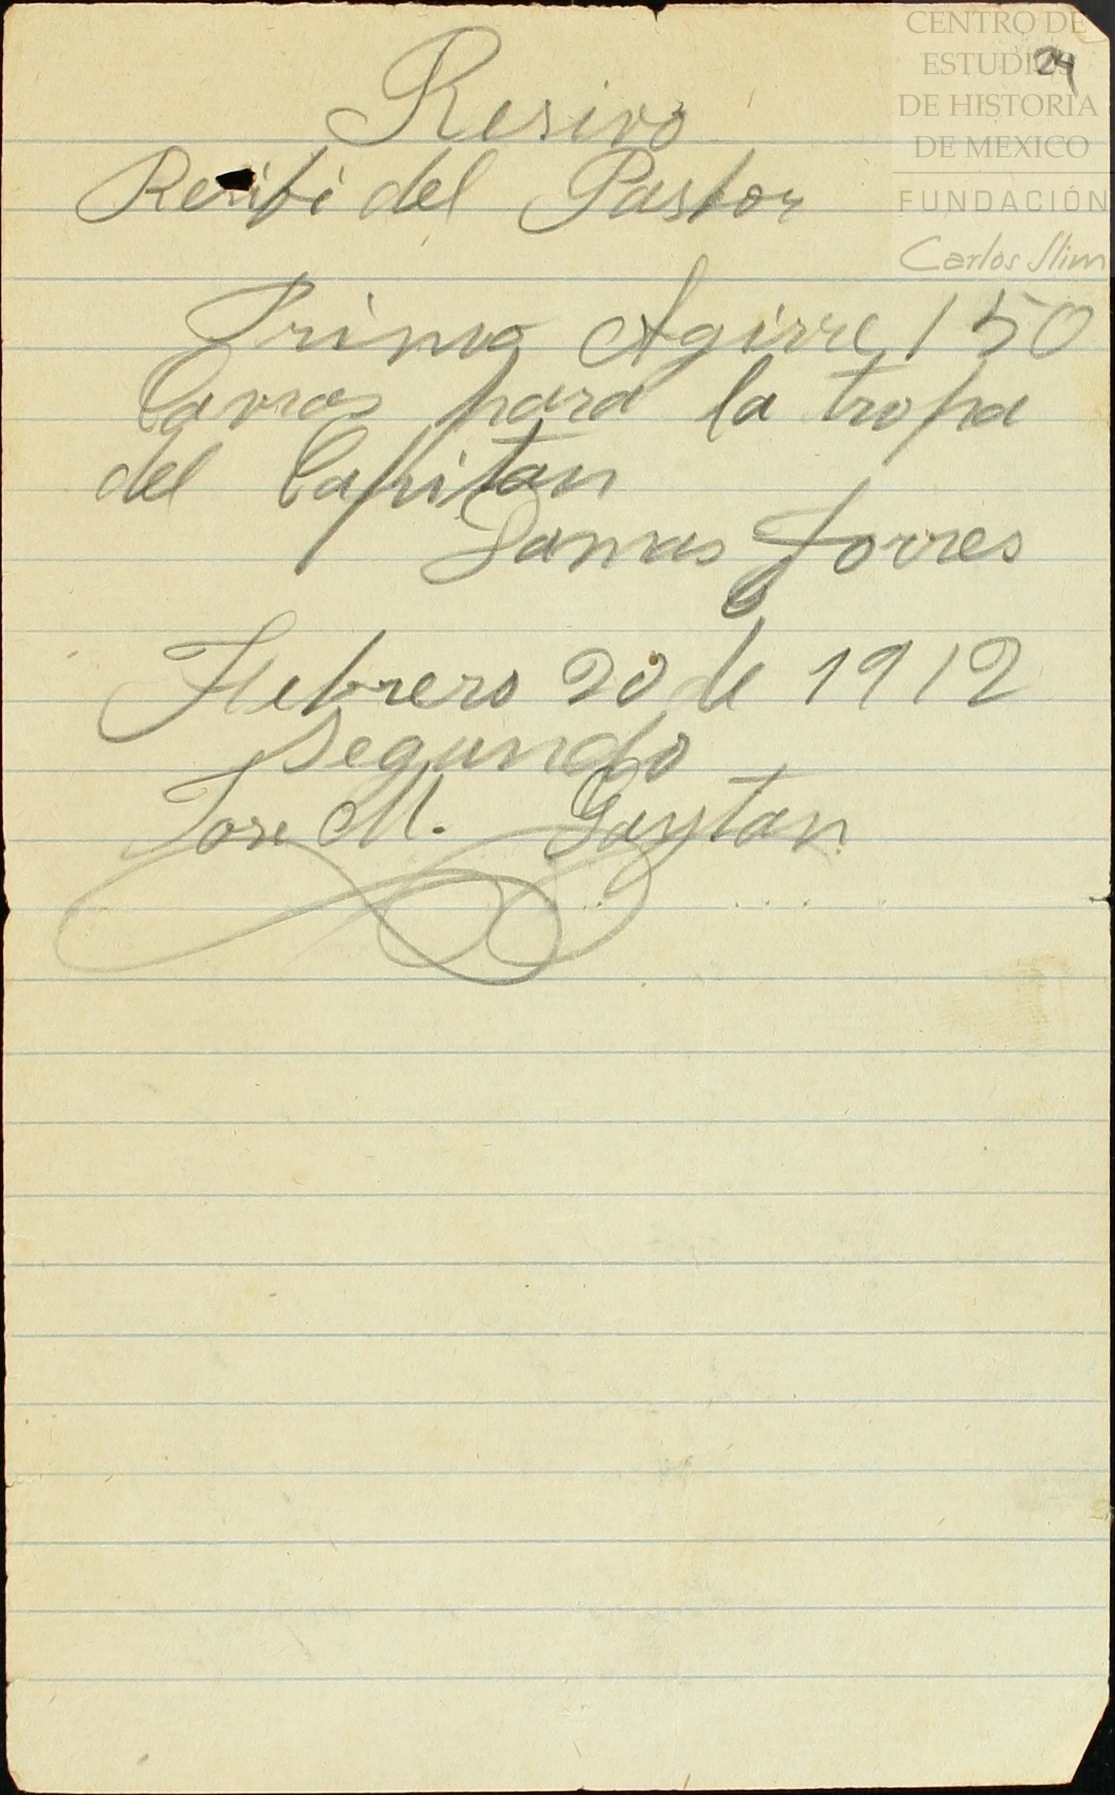 CENTRO DE
ESTUDIOS
DE HISTORIA
DE MEXICO
FUNDACIÓN
Carlos Slim
24
Resivo
Resibi del Pastor
Primo Agirre 150
Carros para la tropa
del Capitan
Damas Torres
Febrero 20 de 1912
Segundo
Jose M. Gaytan